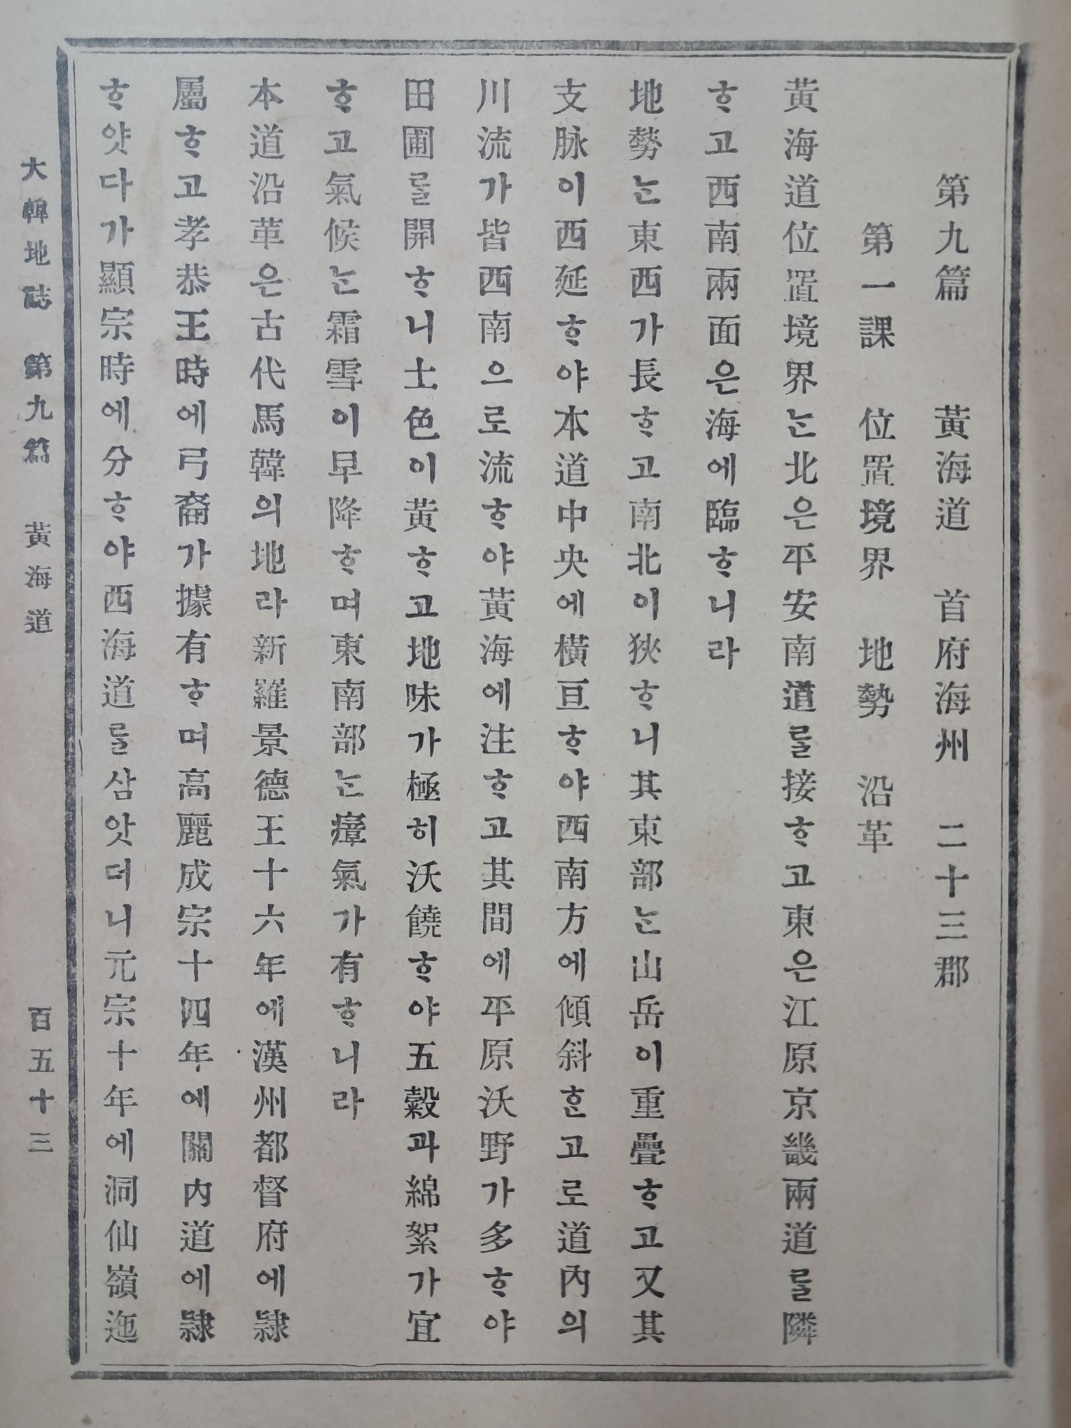 第九篇 黃海道 首府海州 二十三郡
第一課 位置境界 地勢 沿革
黃海道位置境界ᄂᆞᆫ北은平安南道ᄅᆞᆯ接ᄒᆞ고東은江原京畿兩道ᄅᆞᆯ隣
ᄒᆞ고西南兩面은海에臨ᄒᆞ니라
地勢ᄂᆞᆫ東西가長ᄒᆞ고南北이狹ᄒᆞ니其東部ᄂᆞᆫ山岳이重疊ᄒᆞ고又其
支脉이西延ᄒᆞ야本道中央에橫亘ᄒᆞ야西南方에傾斜ᄒᆞᆫ고로道內의
川流가皆西南으로流ᄒᆞ야黃海에注ᄒᆞ고其間에平原沃野가多ᄒᆞ야
田圃ᄅᆞᆯ開ᄒᆞ니土色이黃ᄒᆞ고地味가極히沃饒ᄒᆞ야五穀과綿絮가宜
ᄒᆞ고氣候ᄂᆞᆫ霜雪이早降ᄒᆞ며東南部ᄂᆞᆫ瘴氣가有ᄒᆞ니라
本道沿革은古代馬韓의地라新羅景德王十六年에漢州都督府에隷
屬ᄒᆞ고孝恭王時에弓裔가據有ᄒᆞ며高麗成宗十四年에關內道에隷
ᄒᆞ얏다가顯宗時에分ᄒᆞ야西海道ᄅᆞᆯ삼앗더니元宗十年에洞仙嶺迤
大韓地誌 第九篇 黃海道 百五十三